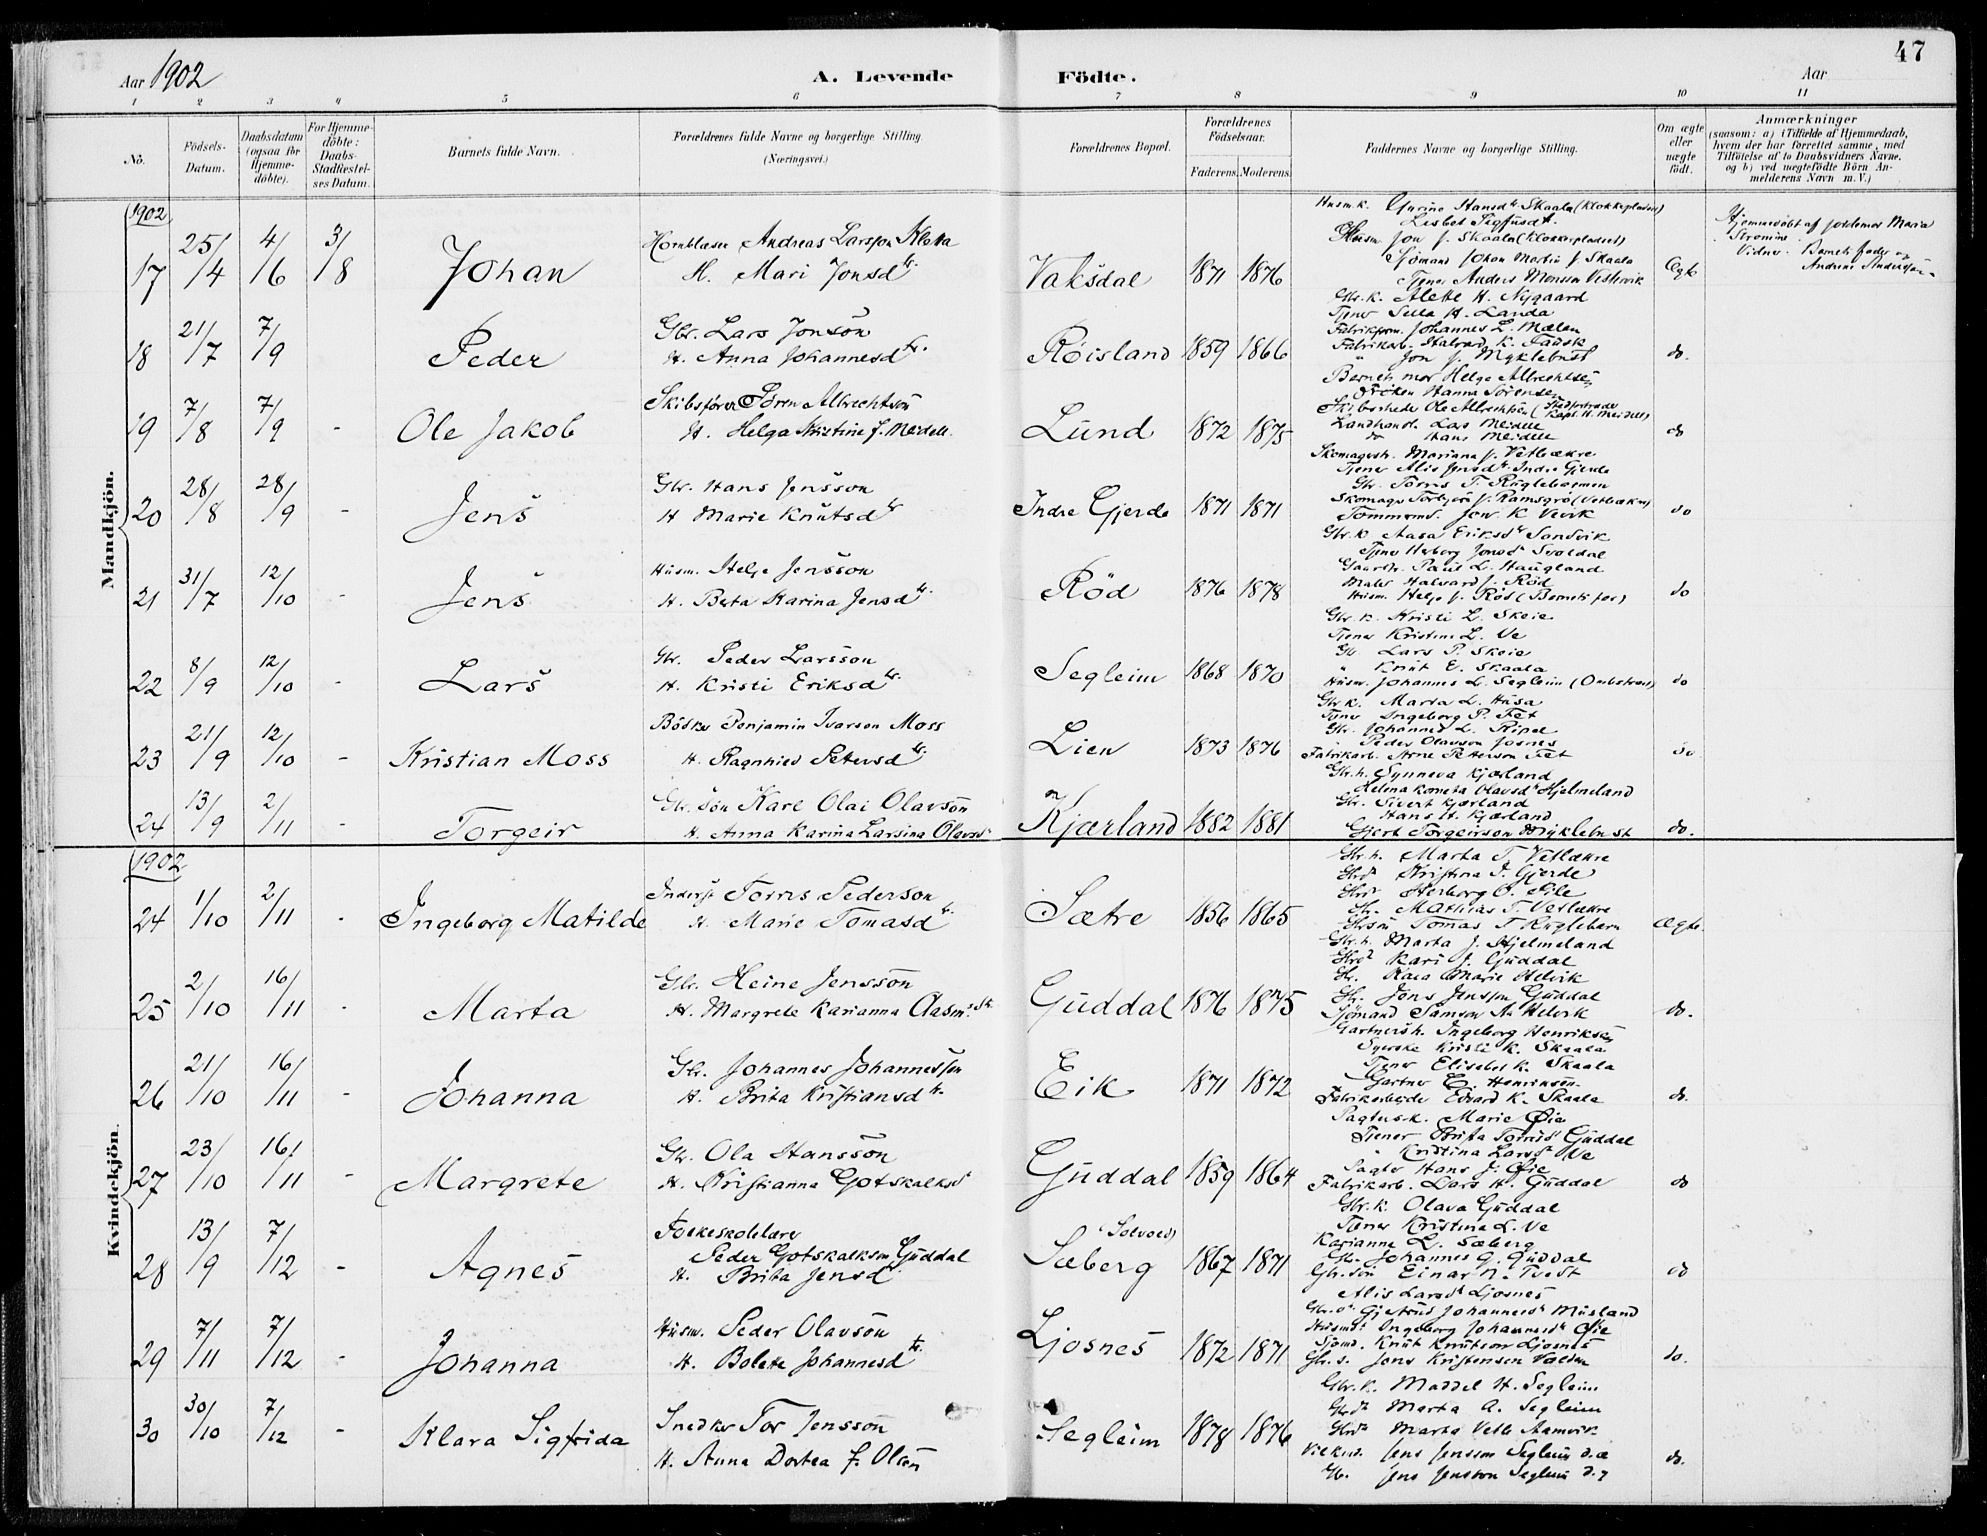 47
Aar 1902
A. Levende Födte.
Aar
1 2 3 4 5 6 7 8 9 10 11
No.
Födsels-Datum.
Daabsdatum (ogsaa för Hjemme-döbte).
For Hjemme-döbte: Daabs-Stadfæstel-ses Datum.
Barnets fulde Navn.
Forældrenes fulde Navne og borgerlige Stilling (Næringsvei.)
Forældrenes Bopæl.
Forældrenes Födselsaar.
Faderens. Moderens.
Faddernes Navne og borgerlige Stilling.
Om ægte eller uægte födt.
Anmærkninger
(saasom: a) i Tilfælde af Hjemmedaab, hvem der har forrettet samme, med Tilföielse af to Daabsvidners Navne, og b) ved uægtefödte Börn Anmelderens Navn m. V.)
Mandkjön.
1902
17 25/4 4/6 3/8 Johan
Hornblæser Andreas Larsson
H. Mari Jonsdtr.
Vaksdal 1871 1876
Jon J. Skaala (Klokkerpladset)
Sjömand Johan Martin J. Skaala
Tjener Anders Monsen
Ægte
Hjemmedöbt af jordemor Maria
Vidner: Barnets fader og
18 21/7 7/9 Peder
Gbr. Lars Jonsön
H. Anna Johannesdtr.
Röisland 1859 1866
Gbr. k. Alette H. Nygaard
Tjener Sella H. Landa
Johannes L. Mælen
" Jon J. Myklebust
do.
19 7/8 7/9 - Ole Jakob
Skibsförer Sören Albrechtson
H. Helga Kristine f. Meidell
Lund 1872 1875
Barnets mor Helga Albrechtsen
Fröken Hanna Sörensen
Skibsrheder Ole Albrechtsen (Stedfortræder Kapt. H. Meidell)
Landhandl. Lars Meidell
do Hans Meidell
do
20 28/8 28/9 - Jens
Gbr. Hans Jensson
H Marie Knutsdtr
Indre Gjerde 1871 1871
Skomagerh. Mariana J. Vetlækre
Tjener Alis Jensdtr Indre Gjerde
Gbr. Torris T.
Skomager Torbjörn J. Ramsgrö (Vetlækre)
Tömmermd. Jon K
do
21 31/7 12/10 - Jens
Husm. Helge Jensson
H. Berta Karina Jensdtr.
Röd 1876 1878
Gbr. k Aasa Eriksdtr Sandvik
Tjener Herborg Jonsdtr
Paul L. Haugland
Maler Halvard J. Röd
Husm. Helge J. Röd (Barnets far)
do
22 8/9 12/10 - Lars
Gbr. Peder Larsson
H. Kristi Eriksdtr.
Segleim 1868 1870
Gbr. k. Kristi L. Skeie
Tjener Kristine L. Ve
Gb. Lars P. Skeie
" Knut E. Skaala
Husm. Johannes L. Segleim
do
23 21/9 12/10 - Kristian Moss
Bödker Benjamin Ivarson Moss
H. Ragnhild Petersdtr.
Lien 1873 1876
Gbr k. Marta L. Husa
Tjener Ingeborg P. Fet
Gbr. Johannes L. Ripel
Peder Olavson
Fabrikarb. Arne Petterson Fet
do
24 13/9 2/11 - Torgeir
Gbr. sön Karl Olai Olavsön
H. Anna Karina Larsina Olavsdtr
Kjærland 1882 1881
Gbr. h. Synneva Kjærland
Helena Olavsdtr Hjelmeland
Gbr. Sivert Kjærland
Hans H. Kjærland
Gjert Torgeirson Myklebust
do.
Kvindekjön.
1902
24 1/10 2/11 - Ingeborg Matilde
Inderst Torris Pederson
H. Marie Tomasdtr.
Sætre 1856 1865
Gbr. h. Marta T. Vetlækre
Kristina J. Gjerde
Herborg O. Eile
Gbr. Mathias T. Vetlækre
Tomas T
Ægte.
25 2/10 16/11 - Marta
Gbr. Heine Jensson
H. Margrete Karianna Aasmdtr
Guddal 1876 1875
Gbr. h. Marta J. Hjelmeland
Kari J. Guddal
Marie Helvik
Gb. Jens Jensson Guddal
Sjömand Samson A. Helvik
do.
26 21/10 16/11 - Johanna
Gbr. Johannes Johannesson
H. Brita Kristiansdtr.
Eik 1871 1872
Gartnersh. Ingeborg Henriksen
Syerske Kristi K. Skaala
Tjener Elisabet K. Skaala
Gartner E. Henriksen
Fabrikarbeide Edvard K. Skaala
do.
27 23/10 16/11 - Margrete
Gbr. Ola Hansson
H. Kristianna Gotskalksdtr
Guddal 1859 1864
Marie Öie
Tjener Brita Guddal
" Kristina Larsdtr Ve
Hans J. Öie
Fabrikarb. Lars H. Guddal
do
28 13/9 7/12 - Agnes
Folkeskolelærer
Peder Gotskalkson Guddal
H. Brita Jensdtr
Sæberg 1867 1871
Gbr. k. Olava Guddal
Tjener Kristina L. Ve
Karianne L. Sæberg
Gbr. Johannes G. Guddal
Gbr. sön Einar N. Tvedt
do
29 7/11 7/12 - Johanna
Husm. Peder Olavsön
H. Bolette Johannesdtr.
Ljosnes 1872 1871
Alis Larsdtr Ljosnes
Gjertrud Johannesdtr Musland
Ingeborg Johannesdtr Öie
Sjömd. Knut Knutson Ljosnes
Gbr. s. Jens Kristensen
do.
30 30/10 7/12 - Klara Sigfrida
Snedker Tor Jensson
H. Anna Dortea f. Olsen
Segleim 1878 1876
Gbr. k. Maddel H. Segleim
Marta A. Segleim
Marta Aamvik
Jens Jensson Segleim d.e
Gb. Jens Jensson Segleim d.y
do.